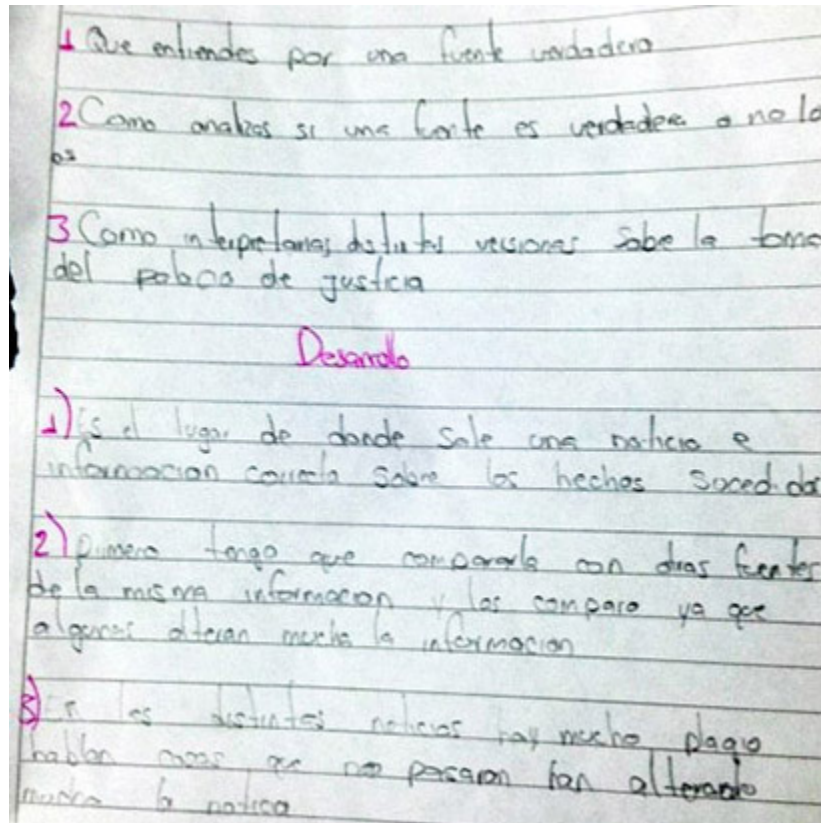 1 Que entiendes por una fuente verdadera
2 Como analizas si una fuente es verdadera o no lo
es
3 Como interpretarias distintas versiones sobe la toma
del palacio de justicia
Desarrollo
1) Es el lugar de donde sale una noticia e
informacion correcta sobre los hechos socedidos
2) primero tengo que compararla con otras fuentes
de la misma informacion y las comparo ya que
algunas alteran mucho la informacion
3) En las distintas noticias hay mucho plagio
hablan cosas que no pasaron han alterando
mucho la notica